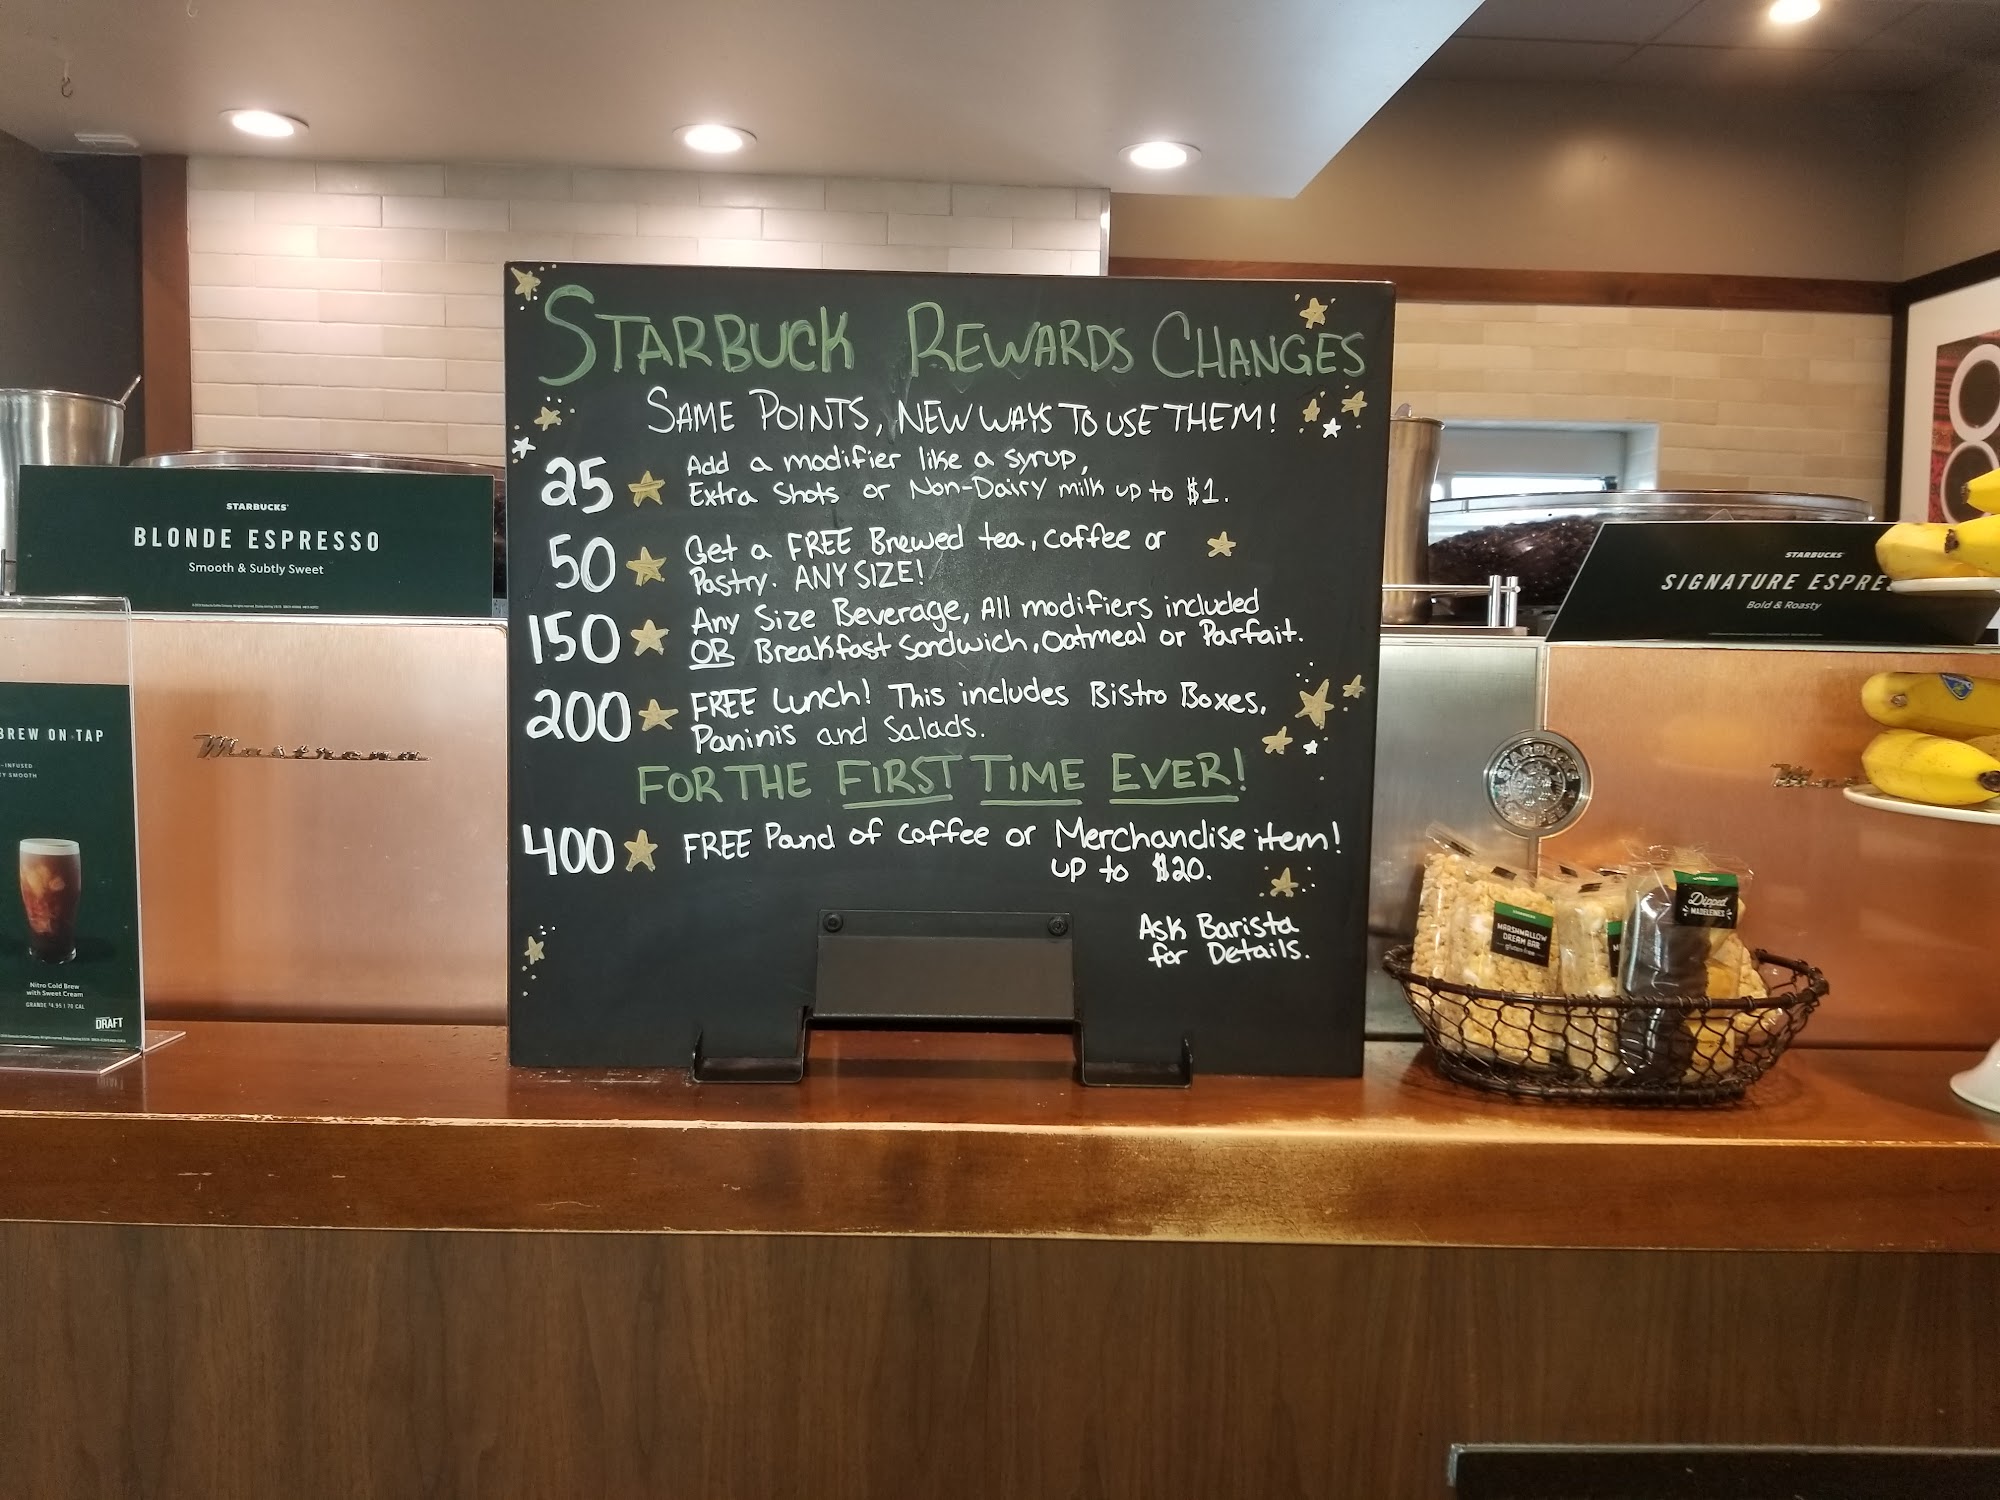 STARBUCK REWARDS CHANGES
SAME POINTS, NEW WAYS TO USE THEM!
25 Add a modifier like a syrup,
Extra Shots or Non-Dairy milk up to $1.
50 Get a FREE Brewed tea, coffee or
Pastry. ANY SIZE!
150 Any Size Beverage, All modifiers included
OR Breakfast Sandwich, Oatmeal or Parfait.
200 FREE Lunch! This includes Bistro Boxes,
Paninis and Salads.
FOR THE FIRST TIME EVER!
400 FREE Pound of coffee or Merchandise item!
up to $20.
Ask Barista
for Details.
STARBUCKS
BLONDE ESPRESSO
Smooth & Subtly Sweet
Mastrena
BREW ON TAP
-INFUSED
Y SMOOTH
Nitro Cold Brew
with Sweet Cream
GRANDE $4.95 | 70 CAL
DRAFT
STARBUCKS
SIGNATURE ESPRE
Bold & Roasty
STARBUCKS
MARSHMALLOW
DREAM BAR
gluten-free
Dipped
MADELEINES